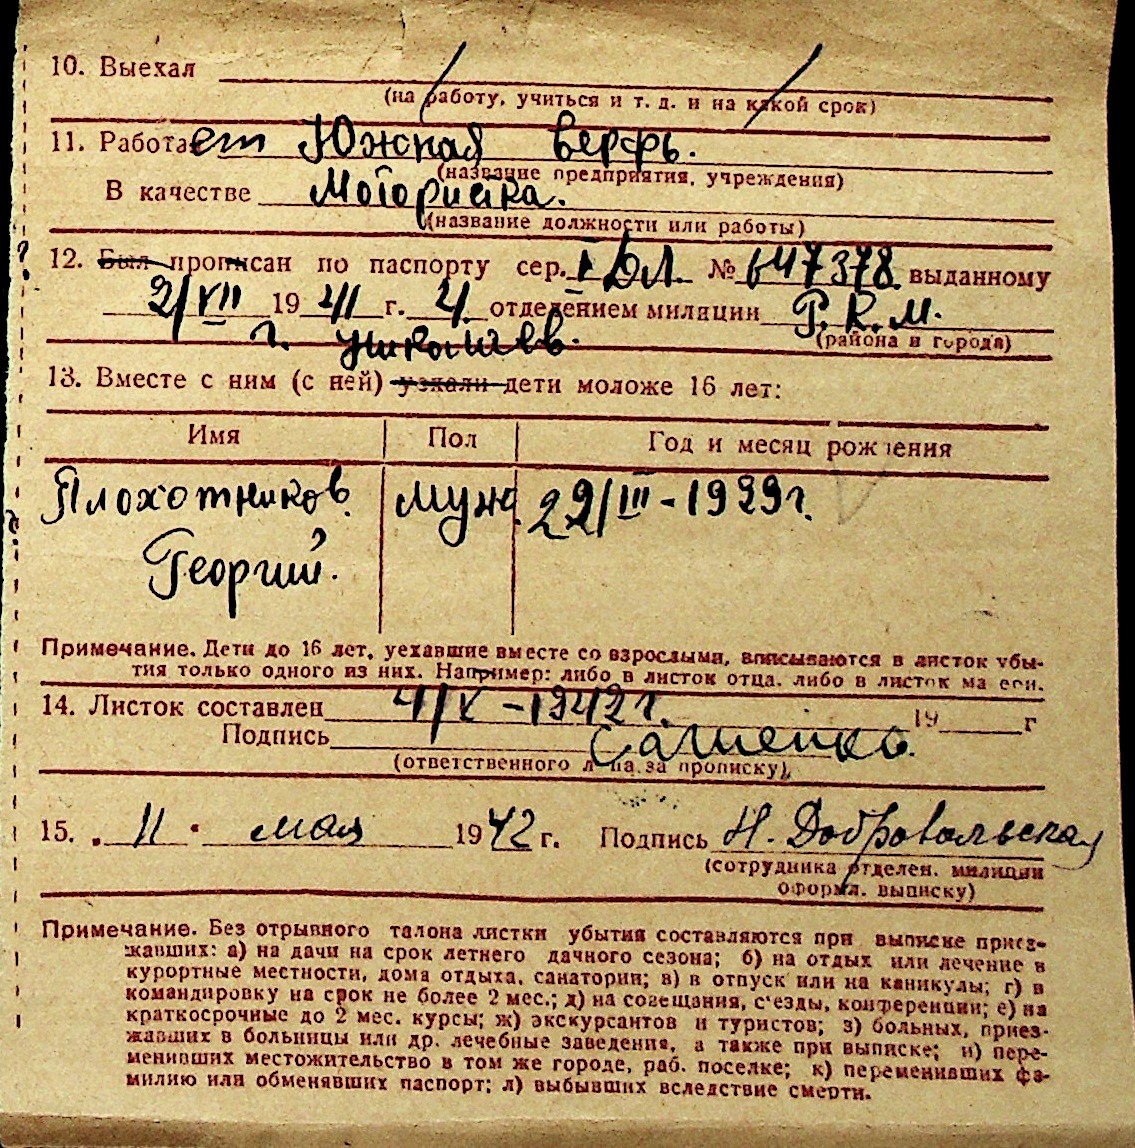 10. Выехал
(на работу, учиться и т. д. и на какой срок)
11. Работает Южная верфь.
(название предприятия, учреждения)
В качестве Мотористка.
(название должности или работы)
12. Был прописан по паспорту сер. I ДЛ. № 647378 выданному
2/VII 1941 г. 4 отделением милиции Р.К.М.
(района и города)
г. Николаев.
13. Вместе с ним (с ней) уехали дети моложе 16 лет:
Имя Пол Год и месяц рождения
Плохотников Муж. 29/III - 1939 г.
Георгий.
Примечание. Дети до 16 лет, уехавшие вместе со взрослыми, вписываются в листок убы-
тия только одного из них. Например: либо в листок отца, либо в листок матери.
14. Листок составлен 4/V - 1942 г. 19 г
Подпись
(ответственного лица за прописку)
15. „11" мая 1942 г. Подпись Н. Добровольская
(сотрудника отделен. милиции
оформ. выписку)
Примечание. Без отрывного талона листки убытия составляются при выписке приез-
жавших: а) на дачи на срок летнего дачного сезона; б) на отдых или лечение в
курортные местности, дома отдыха, санатории; в) в отпуск или на каникулы; г) в
командировку на срок не более 2 мес.; д) на совещания, с'езды, конференции; е) на
краткосрочные до 2 мес. курсы; ж) экскурсантов и туристов; з) больных, приез-
жавших в больницы или др. лечебные заведения, а также при выписке; и) пере-
менивших местожительство в том же городе, раб. поселке; к) переменивших фа-
милию или обменявших паспорт; л) выбывших вследствие смерти.